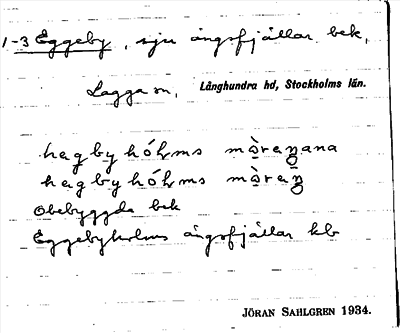 1-3 Eggeby, sju ängsfjällar bek,
Lagga sn, Långhundra hd, Stockholms län.
hęgbyhólms
hęgbyhólms
Obebyggda bek
Eggebyholms ängsfjällar kb
JÖRAN SAHLGREN 1934.